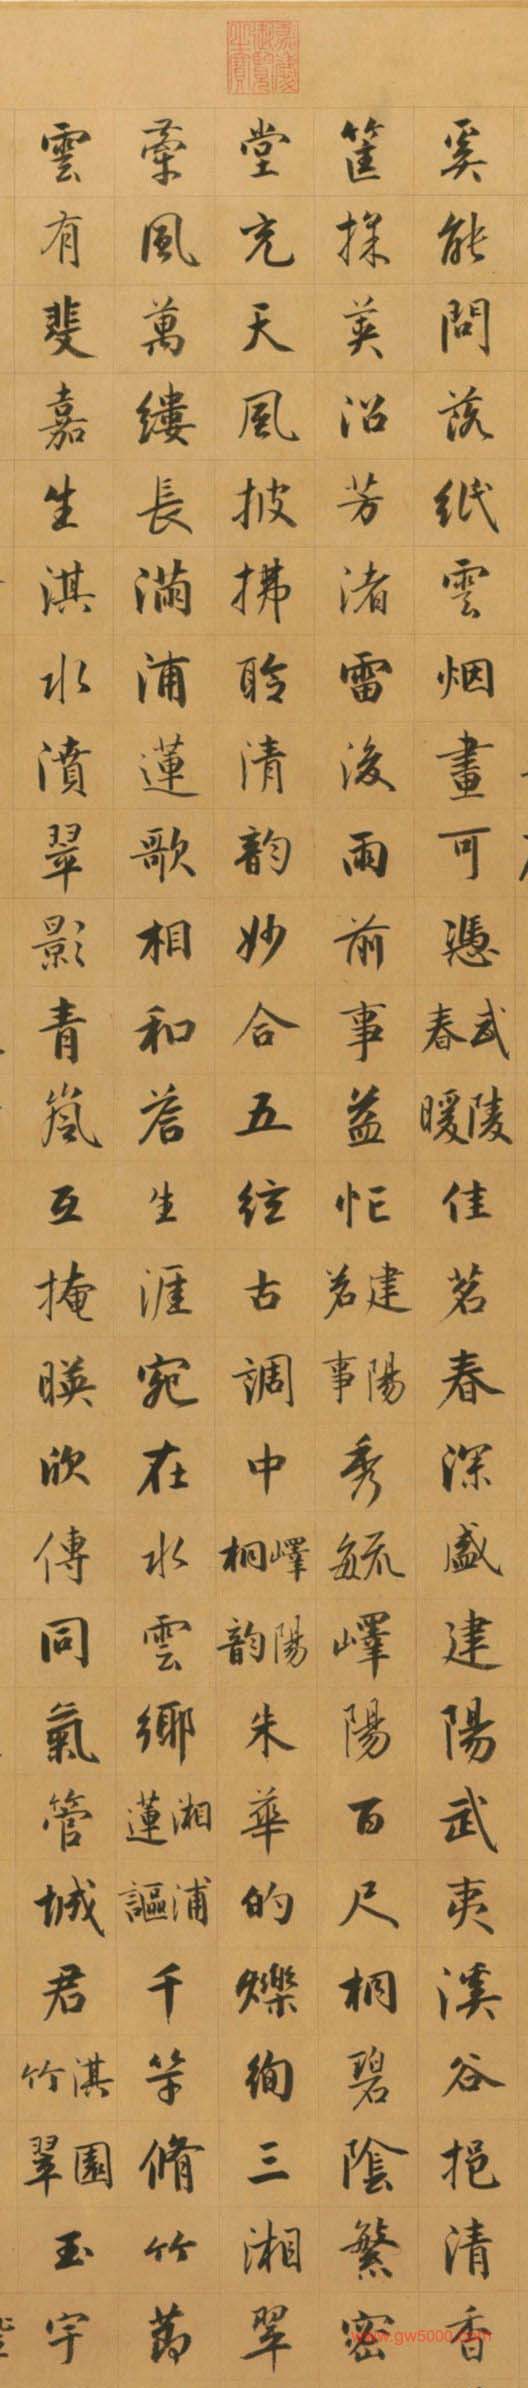 奚能問落紙雲烟畫可憑武陵春暖佳茗春深盛建陽武夷溪谷挹清香
筐採英沿芳渚雷後雨前事益忙建陽茗事秀毓嶧陽百尺桐碧陰繁密
堂充天風披拂聆清韵妙合五絃古調中嶧陽桐韵朱華的爍絢三湘翠
葉風萬縷長滿浦蓮歌相和答生涯宛在水雲鄉湘浦蓮謳千竿脩竹蔚
雲有斐嘉生淇水濆翠影青嵐互掩暎欣傳同氣管城君淇園竹翠玉宇
嘉慶御覽之寶
www.gw5000.com